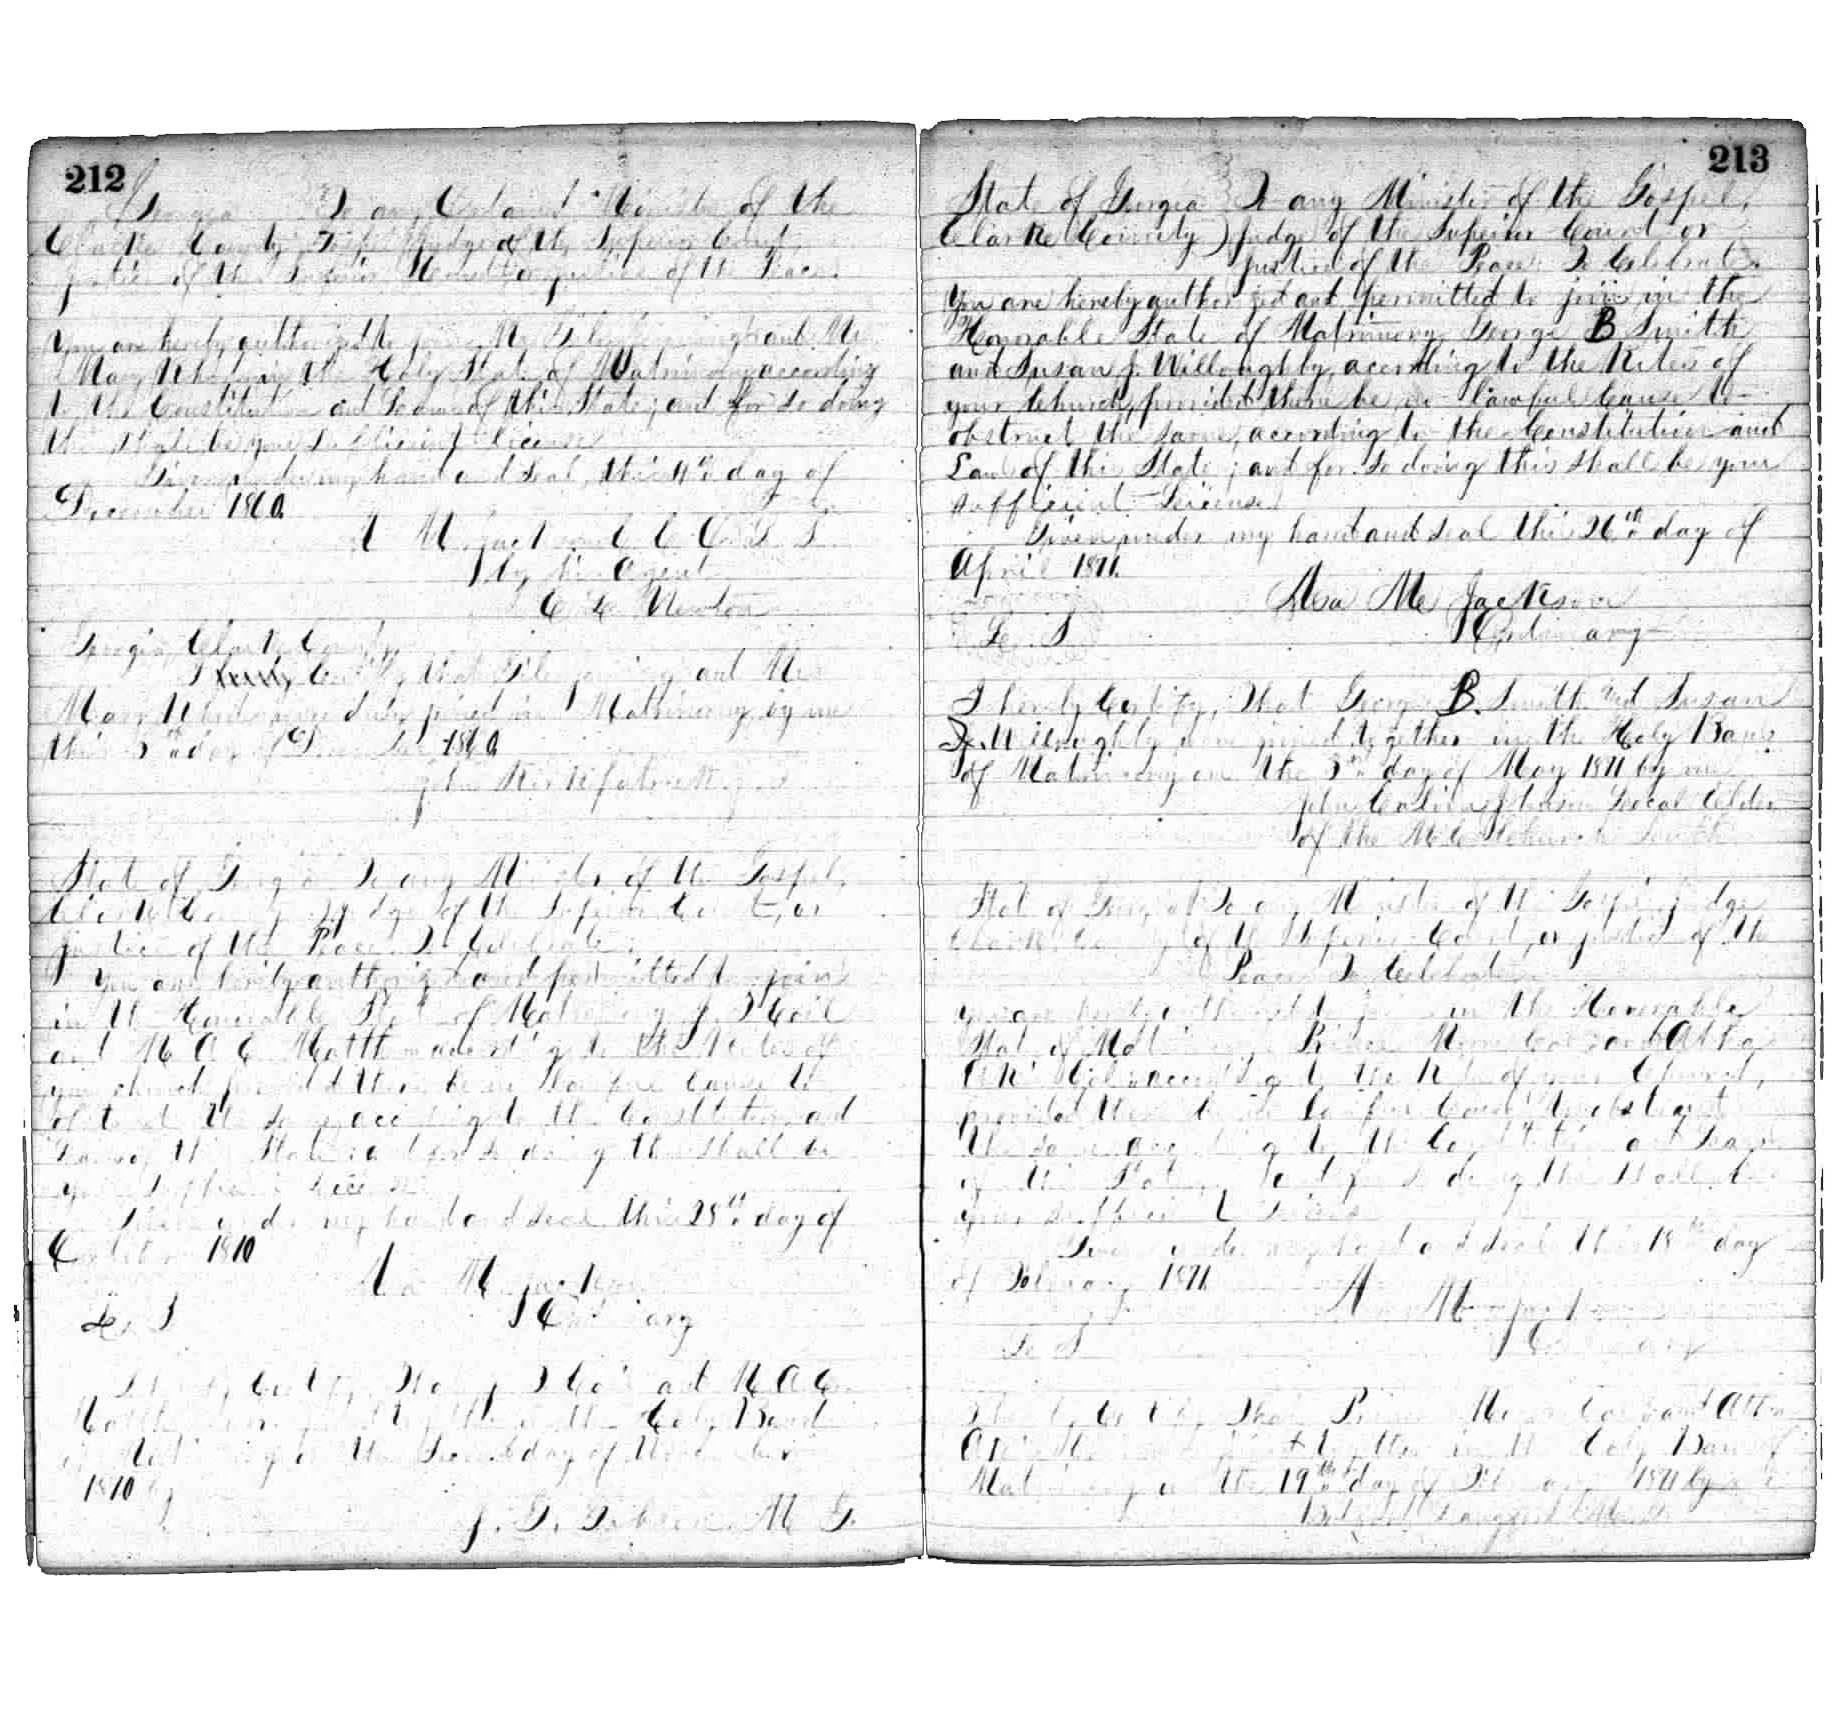 212
Georgia To any Ordained Minister of the
Clarke County Judge of the Superior Court,
justice of the Inferior Court or justice of the Peace.
You are hereby authorized to join Mr and Mrs
Mary in the Holy State of Matrimony according
to the Constitution and Laws of this State; and for so doing
this shall be your sufficient license
Given under my hand and seal, this 4th day of
December 1860.
A M Jackson C C O L S.
by his Agent
C Newton
Georgia, Clarke County
I certify that and Mrs
Mary were duly joined in Matrimony by me
this 5th day of December 1860
John Kirkpatrick J.
State of Georgia To any Minister of the Gospel,
Clarke County Judge of the Superior Court, or
justice of the Peace To Celebrate:
You are hereby authorized and permitted to join
in the Honorable State of Matrimony J. T
and M A C according to the Rites of
your church provided there be no lawful cause to
obstruct the same according to the Constitution and
Laws of this State and for so doing this shall be
your sufficient License
Given under my hand and seal this 25th day of
October 1870
Asa M Jackson
L. S Ordinary
I hereby Certify, That J T and M A C
were joined together in the Holy Bands
of Matrimony on the Second day of November
1870 by
J. G. M G.
213
State of Georgia To any Minister of the Gospel,
Clarke County ) Judge of the Superior Court or
justice of the Peace To Celebrate.
You are hereby authorized and permitted to join in the
Honorable State of Matrimony George B Smith
and Susan J. Willoughby, according to the Rites of
your Church, provided there be no lawful Cause to
obstruct the same, according to the Constitution and
Laws of this State; and for so doing this shall be your
sufficient License.
Given under my hand and seal this 26th day of
April 1871.
Asa M Jackson
L. S Ordinary
I hereby Certify, That George B. Smith and Susan
J. Willoughby were joined together in the Holy Bands
of Matrimony on the 3rd day of May 1871 by me
John Calvin Johnson Local Elder
of the M. E. Church South
State of Georgia To any Minister of the Gospel, Judge
Clarke County of the Superior Court, or justice of the
Peace To Celebrate
you are hereby authorized to join in the Honorable
State of Matrimony Prince and
according to the Rites of your Church,
provided there be no lawful Cause to obstruct
the same according to the Constitution and Laws
of this State, and for so doing this shall be
your sufficient License
Given under my hand and seal this 18th day
of February 1871.
Asa M Jackson
L. S Ordinary
I hereby Certify, That Prince and
were joined together in the Holy Bans of
Matrimony on the 19th day of February 1871 by me